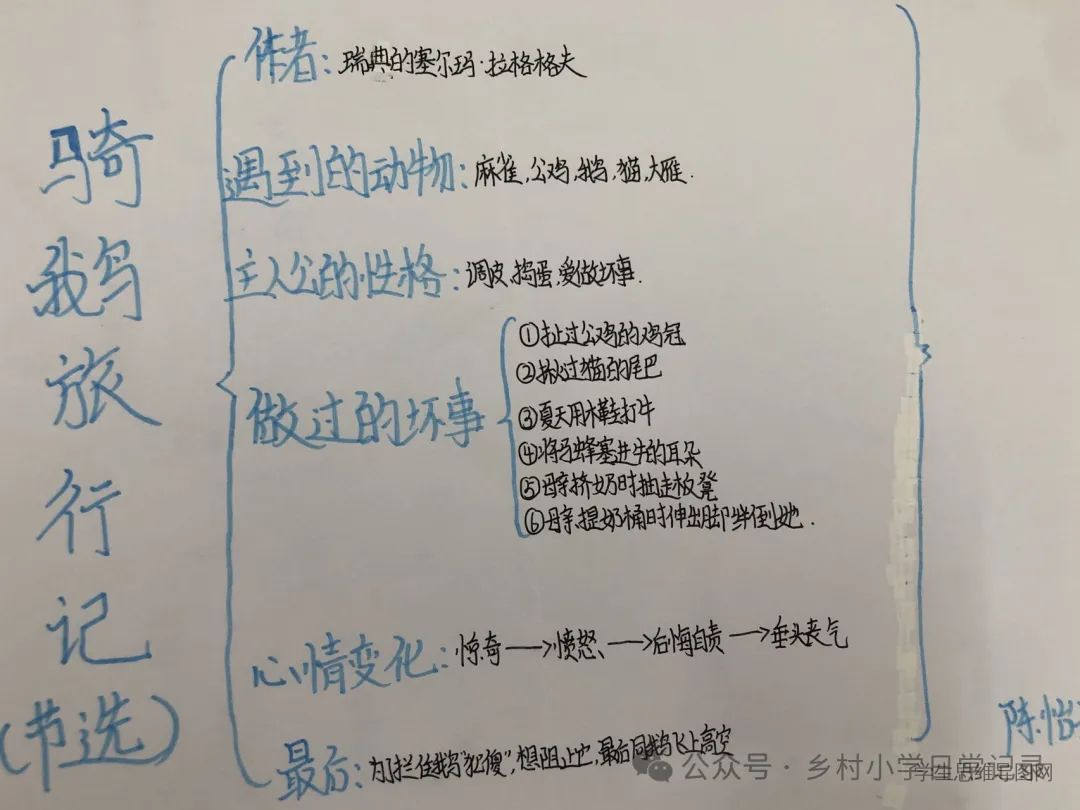 骑鹅旅行记(节选)
作者:瑞典的塞尔玛·拉格格夫
遇到的动物:麻雀,公鸡,鹅,猫,大雁.
主人公的性格:调皮,捣蛋,爱做坏事.
做过的坏事
①扯过公鸡的鸡冠
②揪过猫的尾巴
③夏天用木鞋打牛
④将马蜂塞进牛的耳朵
⑤母亲挤奶时抽走板凳
⑥母亲提奶桶时伸出脚绊倒她.
心情变化:惊奇→愤怒→后悔自责→垂头丧气
最后:为拦住鹅"犯傻",想阻止它,最后同鹅飞上高空
陈怡
公众号·乡村小学日常记录
学生思维导图网